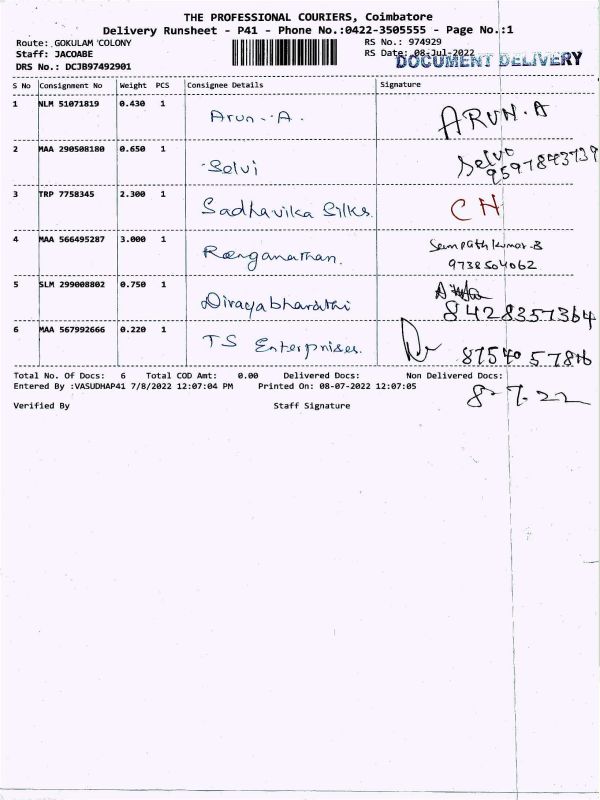 THE PROFESSIONAL COURIERS, Coimbatore
Delivery Runsheet - P41 - Phone No.:0422-3505555 - Page No.:1
Route: GOKULAM COLONY RS No.: 974929
Staff: JACOABE RS Date: 08-Jul-2022 DOCUMENT DELIVERY
DRS No.: DCJB97492901
S No Consignment No Weight PCS Consignee Details Signature
1 NLM 51071819 0.430 1 Arun.A. ARUN.A
2 MAA 290508180 0.650 1 Selvi Selvi
9597843739
3 TRP 7758345 2.300 1 Sadhavika Silks. CH
4 MAA 566495287 3.000 1 Ranganathan. Sampath kumar.B
9738504062
5 SLM 299008802 0.750 1 Divayabharathi
8428357364
6 MAA 567992666 0.220 1 TS Enterprises.
Total No. Of Docs: 6 Total COD Amt: 0.00 Delivered Docs: Non Delivered Docs:
Entered By :VASUDHAP41 7/8/2022 12:07:04 PM Printed On: 08-07-2022 12:07:05
8-7.22
Verified By Staff Signature